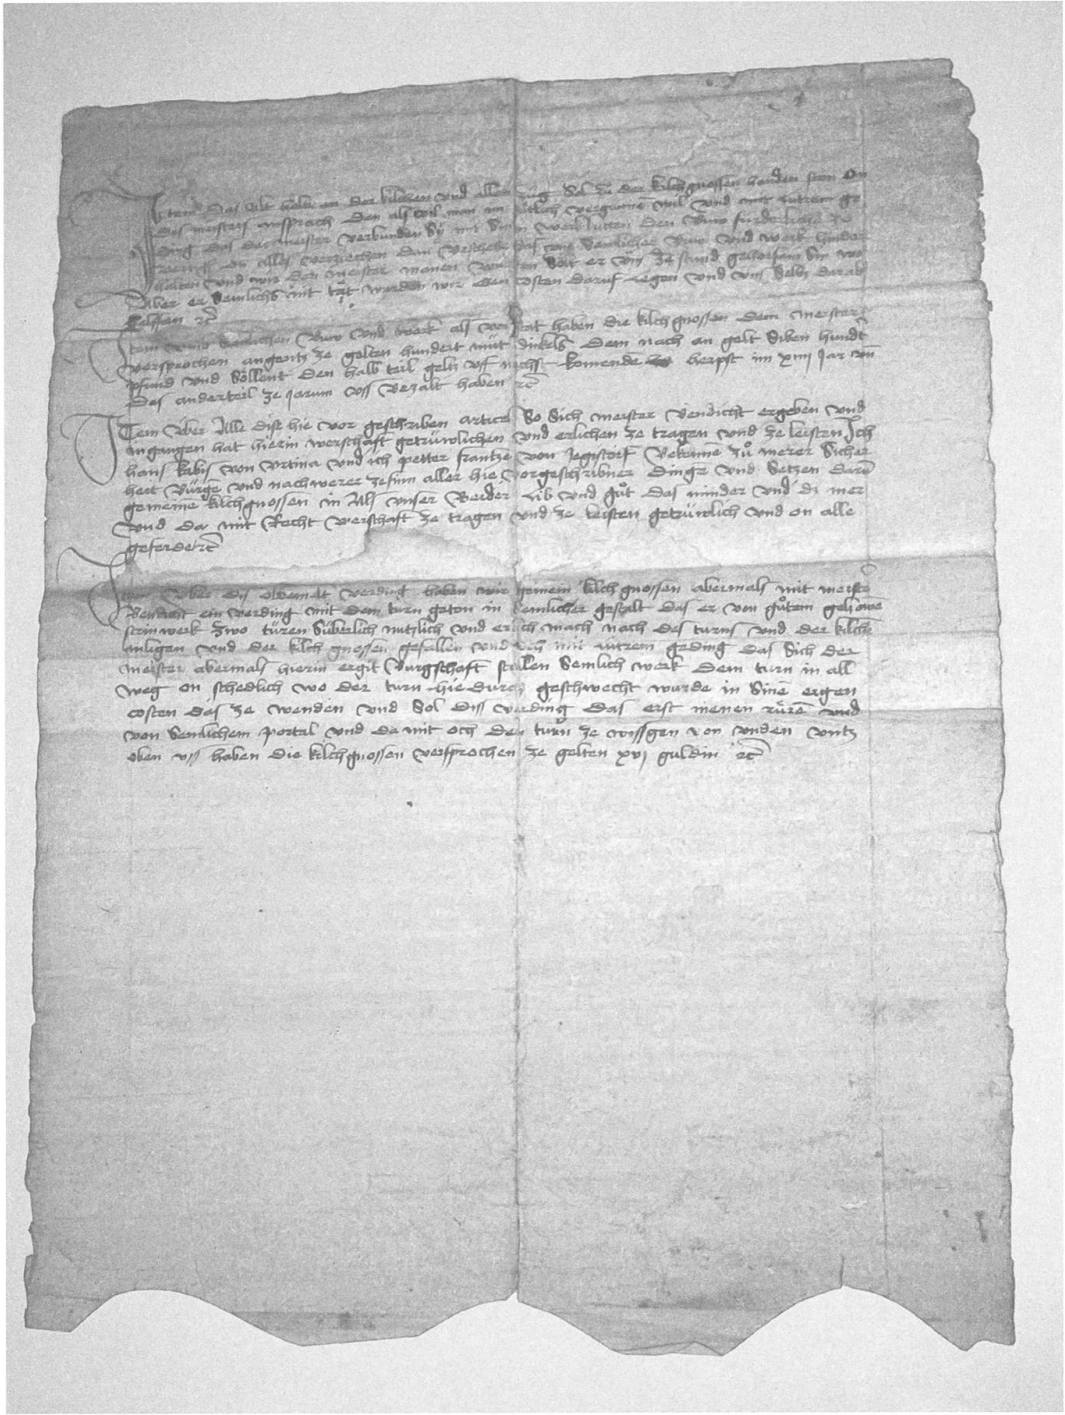 Item Das alt holtz an der kilchen und allen zúg Sol zů der kilchgnossen handen ston on
des meisters ansprach Den als wil man im gůtlich vergunne wol und mit lutrem ge
ding das der meister verbunden Sÿ mit Sinen werklütten Den Buw fürderlich ze
on alles verziechen dan beschehe das uns Semlicher Buw und werk hinder
halten und wir den meister manen wurden Solt er uns Ze stund gehorsam Sin wo
Aber er Semlichs nit tët wurden wir den costen daruf legen und uns Selbs darab
helffen etc
Item Umb Semlichen Buw und werk als vor stat haben die kilchgnossen dem meister
versprochen angentz ze gelten hundert müt dinkels Dem nach an gelt Siben hundt
pfund und Söllent Den halb teil geltz uff nechst komende herpst im xiiij Jar un
Das anderteil ze jarum uss Bezalt haben etc
ITem über Alle dise hie vor geschriben articel So Sich meister Bendicht ergeben und
ingangen hat hierin werschaft getrüwlichen und erlichen ze tragen und ze leisten Ich
hans kabis von Urtina und ich petter frantze von Jegistorf Bekenne zů merer Sicher
heit Bürge und nachwerer zesam aller hie vorgeschribner Dinge und Setzen darum
gemeine kilchgnossen in Als unser Beder Lib und gůt das minder und di mer
Und da mit Recht werschaft ze tragen und ze leisten getrüwlich und on alle
geferde etc
Item Uber dis obemalt verding haben wir gemein kilchgnossen abermals mit meister
Bendicht ein verding mit dem turn geton in Semlicher gestalt das er von gůtem gehowne
steinwerk zwo türen Süberlich nutzlich und erlich mach nach des turns und der kilchen
anligen und der kilch gnossen gefallen und mit lutrem geding das Sich der
meister abermals hierin ergit Burgschaft stellen Semlich werk dem turn in all
weg on schedlich wo der turn hie durch geschwecht wurde in Sinen eigen
costen das ze wenden und Sol diss verding das erst nienen rüren und
von Semlichem portal und da mit och den turn ze wissgen von unden untz
oben uss haben die kilchgnossen versprochen ze gelten xvj guldin etc